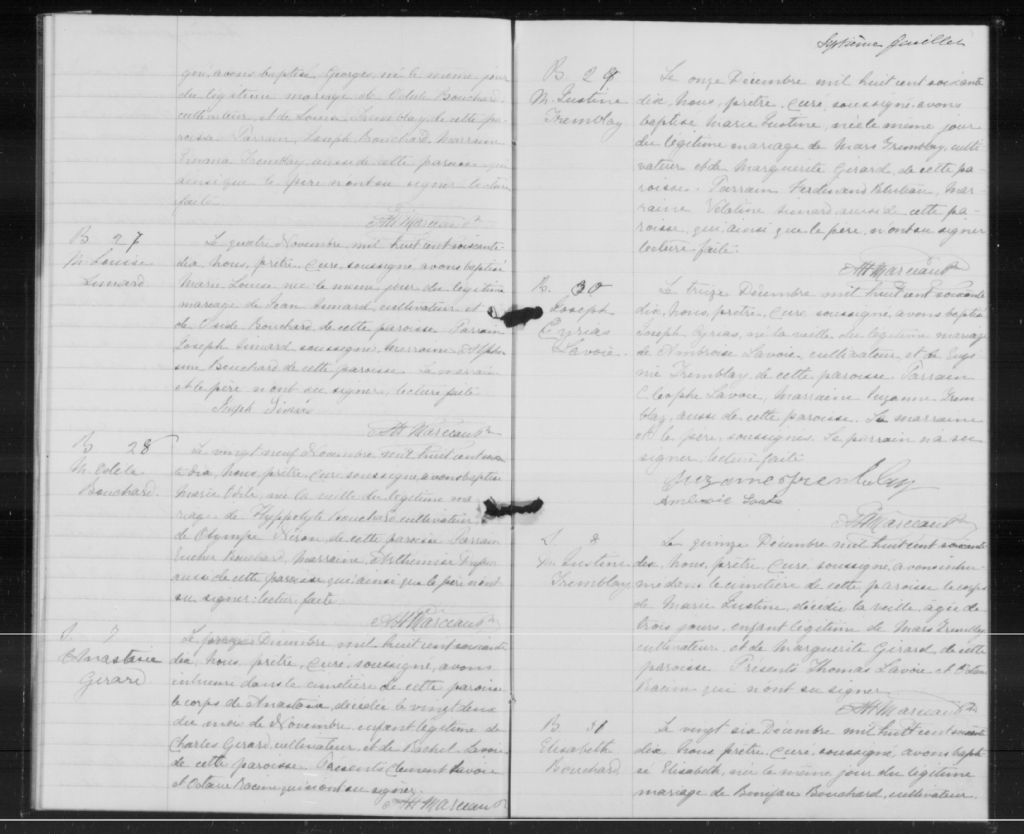 qui, avons baptisé Georges, né le même jour
du légitime mariage de Odule Bouchard,
cultivateur, et de Louise Tremblay, de cette pa-
roisse. Parrain, Joseph Bouchard, Marraine
Emma Tremblay, aussi de cette paroisse, qui
ainsi que le père n'ont su signer. Lecture
faite.
Marceau Ptr
B 27
M. Louise
Simard
Le quatre Novembre, mil huit cent soixante
dix, Nous, prêtre, Curé, soussigné, avons baptisé
Marie Louise née le même jour du légitime
mariage de Jean Simard, cultivateur et
de Bouchard de cette paroisse. Parrain
Joseph Simard soussigné, Marraine
Bouchard de cette paroisse. La marraine
et le père n'ont su signer, lecture faite.
Joseph Simard
Marceau Ptr
B 28
M. Edèle
Bouchard
Le vingt neuf Novembre mil huit cent soixan
te dix, Nous, prêtre, Curé, soussigné, avons baptisé
Marie Edèle, née la veille du légitime ma
riage de Hyppolyte Bouchard, cultivateur,
de Olympe Néron, de cette paroisse. Parrain
Eucher Bouchard, Marraine, Arthémise
aussi de cette paroisse qui ainsi que le père n'ont
su signer; lecture faite.
Marceau Ptr
S. 7
Anastasie
Girard
Le Décembre, mil huit cent soixante
dix, Nous, prêtre, Curé, soussigné, avons
inhumé dans le cimetière de cette paroisse
le corps de Anastasie, décédée le vingt deux
du mois de Novembre, enfant légitime de
Charles Girard, cultivateur, et de Rachel Lavoie
de cette paroisse. Présents Clément Lavoie
et Octave Racine qui n'ont su signer.
Marceau Ptr
Septième feuillet
B 29
M. Justine
Tremblay
Le onze Décembre mil huit cent soixante
dix, Nous, prêtre, Curé, soussigné, avons
baptisé Marie Justine, née le même jour
du légitime mariage de Mars Tremblay, culti-
vateur et de Marguerite Girard, de cette pa-
roisse. Parrain Ferdinand, Mar-
raine Simard aussi de cette pa-
roisse, qui ainsi que le père, n'ont su signer
lecture faite.
Marceau Ptr
B. 30
Joseph
Cyrias
Lavoie.
Le treize Décembre mil huit cent soixante
dix, Nous, prêtre, Curé, soussigné, avons baptisé
Joseph Cyrias, né la veille du légitime mariage
de Ambroise Lavoie, cultivateur, et de Eugé
nie Tremblay, de cette paroisse. Parrain
Cléophe Lavoie, Marraine Suzanne Trem
blay, aussi de cette paroisse. La marraine
et le père, soussignés. Le parrain n'a su
signer, lecture faite.
Suzanne Tremblay
Marceau Ptr
S. 8
M. Justine
Tremblay
Le quinze Décembre mil huit cent soixante
dix, Nous, prêtre, Curé, soussigné, avons inhu-
mé dans le cimetière de cette paroisse le corps
de Marie Justine, décédée la veille, agée de
trois jours, enfant légitime de Mars Tremblay
cultivateur, et de Marguerite Girard, de cette
paroisse. Présents Thomas Lavoie et
qui n'ont su signer
Marceau Ptr
B 31
Elisabeth
Bouchard
Le vingt six Décembre mil huit cent soixante
dix, Nous prêtre, Curé, soussigné, avons bapti
sé Elisabeth, née le même jour du légitime
mariage de Bouchard, cultivateur.